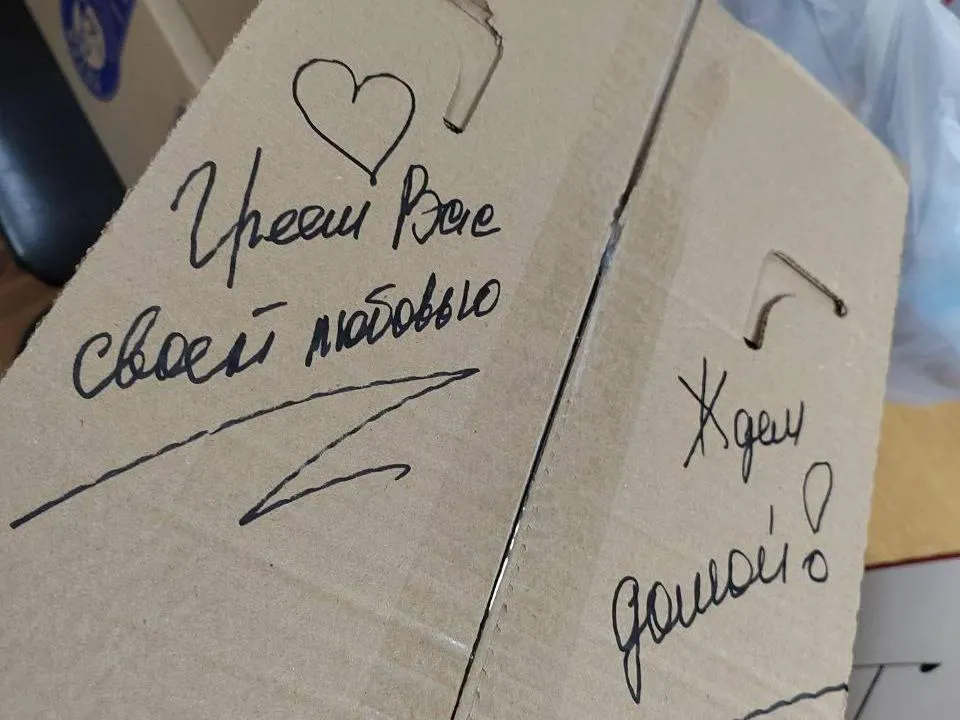 Греем Вас
своей любовью
Ждем
домой!